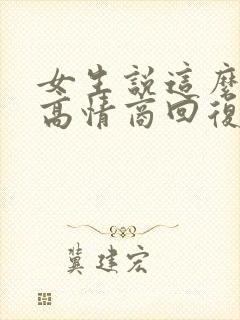 女生説這麽
高情商回復
冀建宏